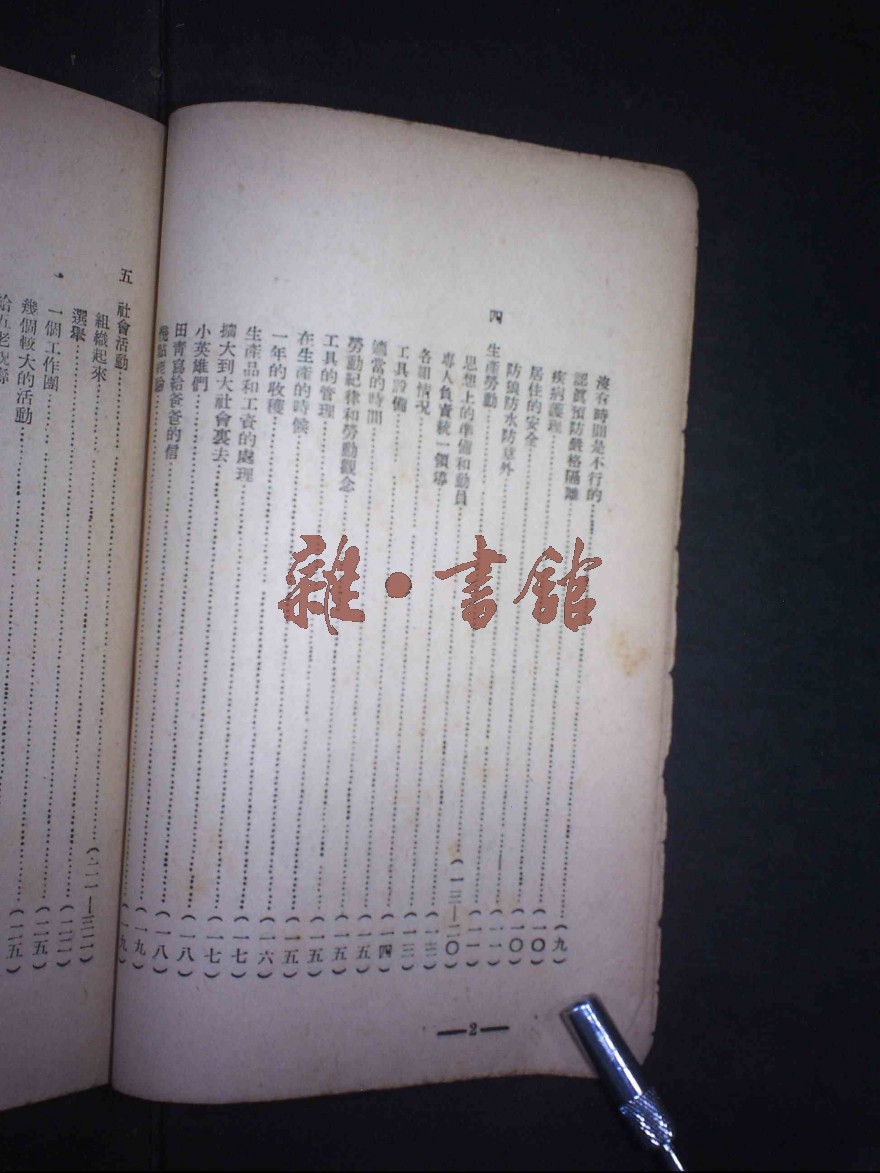 沒有時間是不行的……(九)
認眞預防嚴格隔離……(一〇)
疾病護理……(一〇)
居住的安全……(一一)
防狼防水防意外……(一一)
四 生產勞動……(一三—二〇)
思想上的準備和動員……(一三)
專人負責統一領導……(一三)
各組情况……(一四)
工具設備……(一五)
適當的時間……(一五)
勞動紀律和勞動觀念……(一五)
工具的管理……(一五)
在生產的時候……(一六)
一年的收穫……(一七)
生產品和工資的處理……(一七)
擴大到大社會裏去……(一八)
小英雄們……(一八)
田青寫給爸爸的信……(一九)
幾點經驗……(一九)
—2—
五 社會活動……(二一—三二)
組織起來……(二二)
選舉……(二五)
一個工作團……(二五)
幾個較大的活動
雜•書館